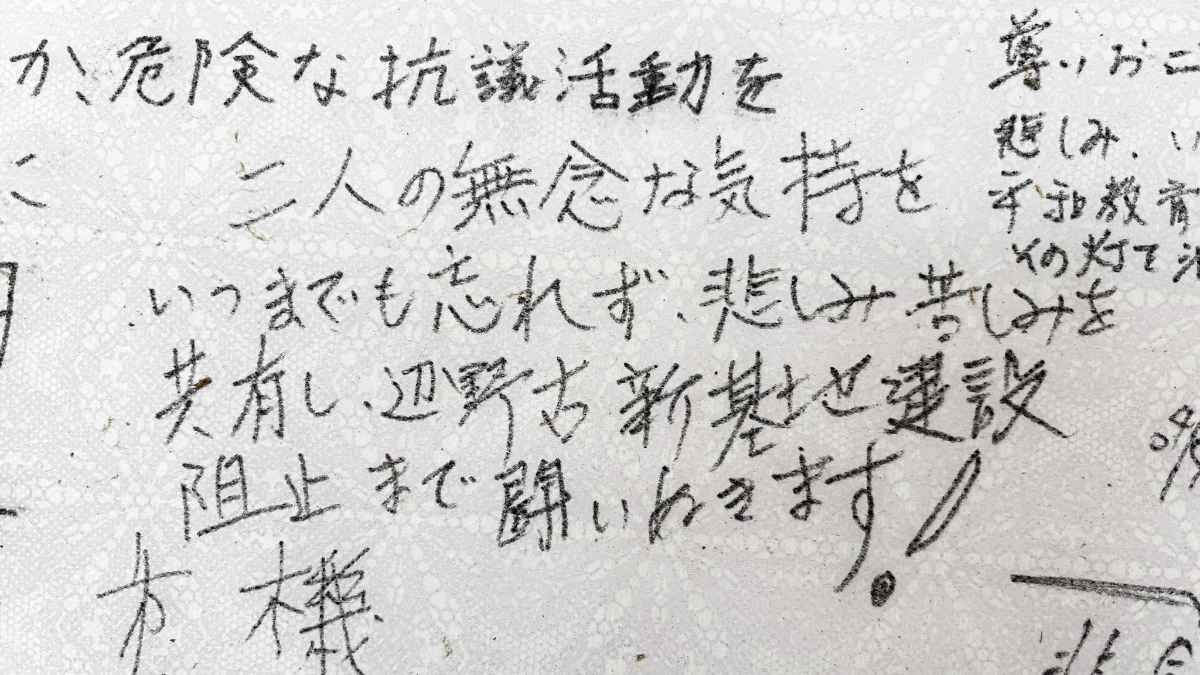 か、危険な抗議活動を
こ
二人の無念な気持を
いつまでも忘れず、悲しみ苦しみを
共有し、辺野古新基地建設
阻止まで闘いぬきます!
有機
尊いお二
悲しみ、い
平和教育
その灯て